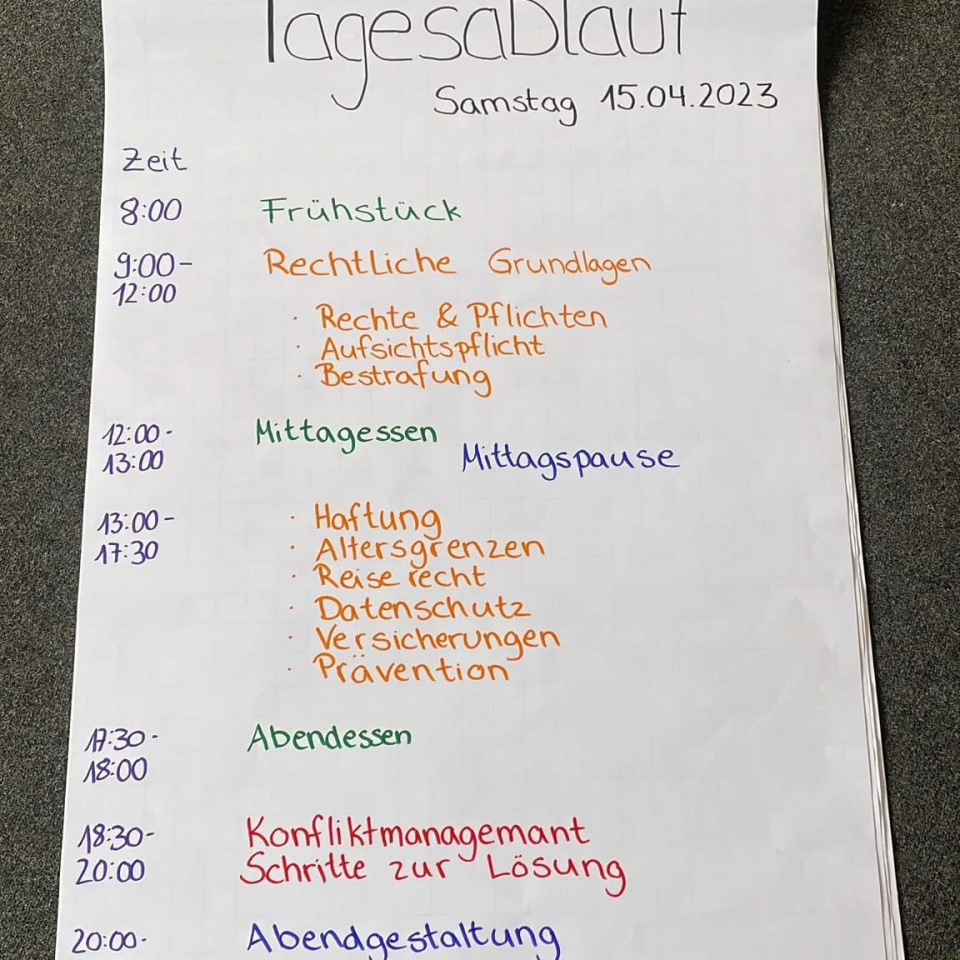 Tagesablauf
Samstag 15.04.2023
Zeit
8:00 Frühstück
9:00- Rechtliche Grundlagen
12:00
· Rechte & Pflichten
· Aufsichtspflicht
· Bestrafung
12:00- Mittagessen
13:00 Mittagspause
13:00- · Haftung
17:30 · Altersgrenzen
· Reiserecht
· Datenschutz
· Versicherungen
· Prävention
17:30- Abendessen
18:00
18:30- Konfliktmanagemant
20:00 Schritte zur Lösung
20:00- Abendgestaltung